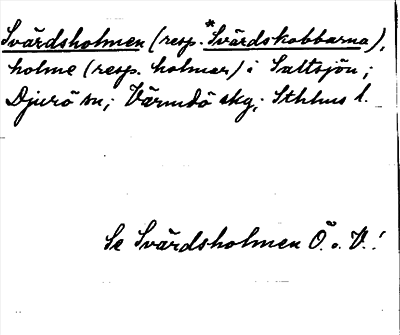 Svärdsholmen (resp. *Svärdskobbarna),
holme (resp. holmar) i Saltsjön;
Djurö sn; Värmdö skg; Sthlms l.
Se Svärdsholmen Ö. o. V.!